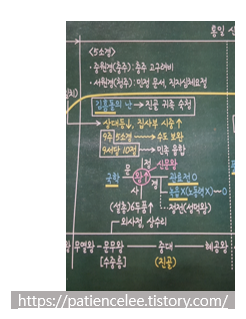 통일 신
<5소경>
· 중원경(충주): 충주 고구려비
· 서원경(청주): 민정 문서, 직지심체요절
김흠돌의 난 → 진골 귀족 숙청
→ 상대등↓, 집사부 시중↑
9주 5소경 → 수도 보완
9서당 10정 → 민족 융합
국학
문
왕↑
신문왕
사
관료전 O
녹읍X
(설총) 6두품↑
정전(성덕왕)
외사정, 상수리
무열왕 - 문무왕
중대
혜공왕
[수중릉]
(진골)
https://patiencelee.tistory.com/